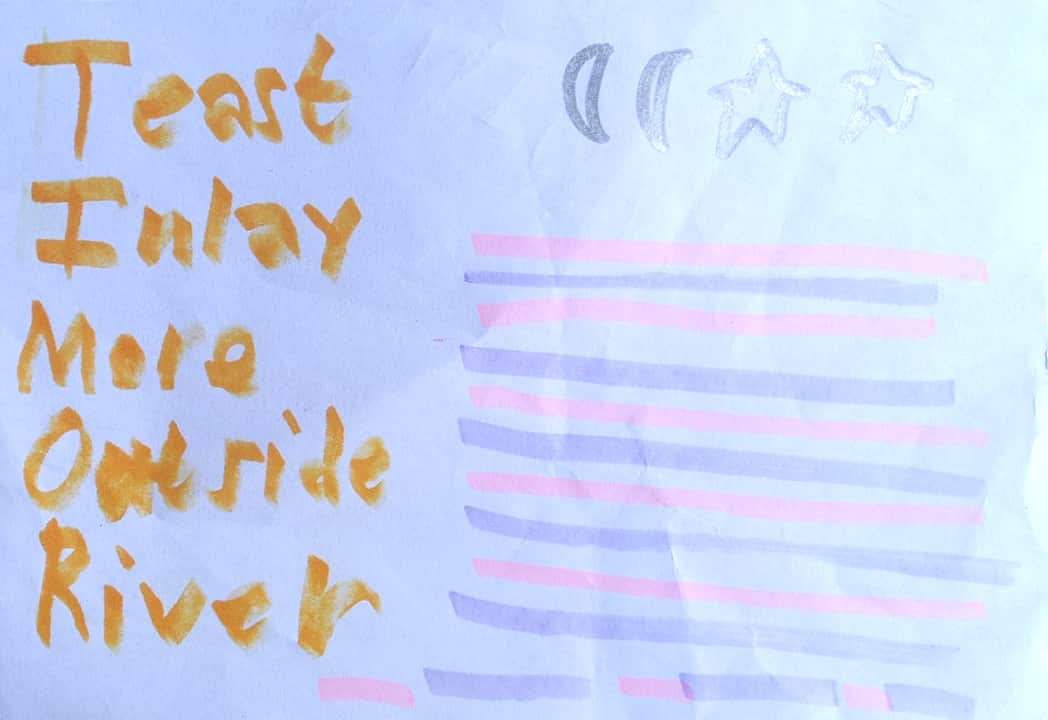 Teast
Inlay
More
Outside
River